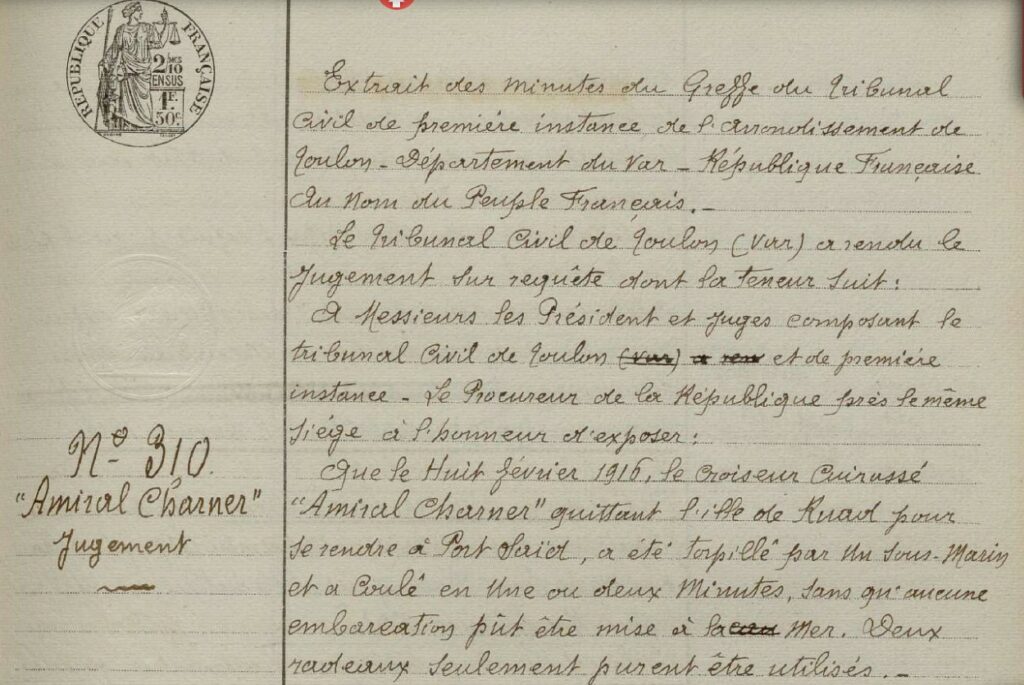 RÉPUBLIQUE FRANÇAISE
2/10 MES
EN SUS
1F.
50c
Extrait des minutes du Greffe du Tribunal
Civil de première instance de l'Arrondissement de
Toulon - Département du Var - République Française
Au Nom du Peuple Français. -
Le Tribunal Civil de Toulon (Var) a rendu le
Jugement sur requête dont la teneur suit :
A Messieurs les Président et Juges composant le
tribunal Civil de Toulon (Var) a ren et de première
instance - Le Procureur de la République près le même
siège à l'honneur d'exposer :
Que le Huit février 1916, le Croiseur Cuirassé
"Amiral Charner" quittant l'ille de Ruad pour
se rendre à Port Saïd, a été torpillé par un Sous-Marin
et a Coulé en Une ou deux Minutes, sans qu'aucune
embarcation pût être mise à la Mer. Deux
radeaux seulement purent être utilisés. -
No 310.
"Amiral Charner"
Jugement